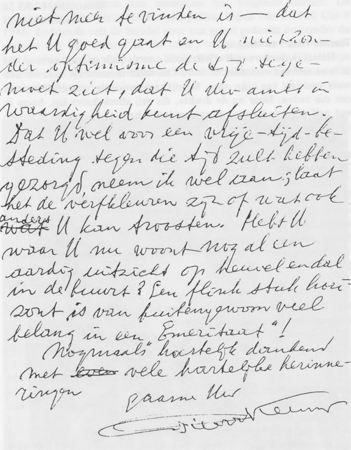 niet meer te vinden is – dat
het U goed gaat en U niet zon-
der optimisme de tijd tege-
moet ziet, dat U Uw ambt in
waardigheid kunt afsluiten.
Dat U wel voor een vrije-tijd-be-
steding tegen die tijd zult hebben
gezorgd, neem ik wel aan; laat
het de verfkleuren zijn of wat ook
anders
U kan troosten. Hebt U
waar U nu woont nog al een
aardig uitzicht op heuvel en dal
in de buurt? Een flink stuk hori-
zont is van buitengewoon veel
belang in een "Emeritaat"!
Nogmaals hartelijk dankend
met vele hartelijke herinne-
ringen
gaarne Uw